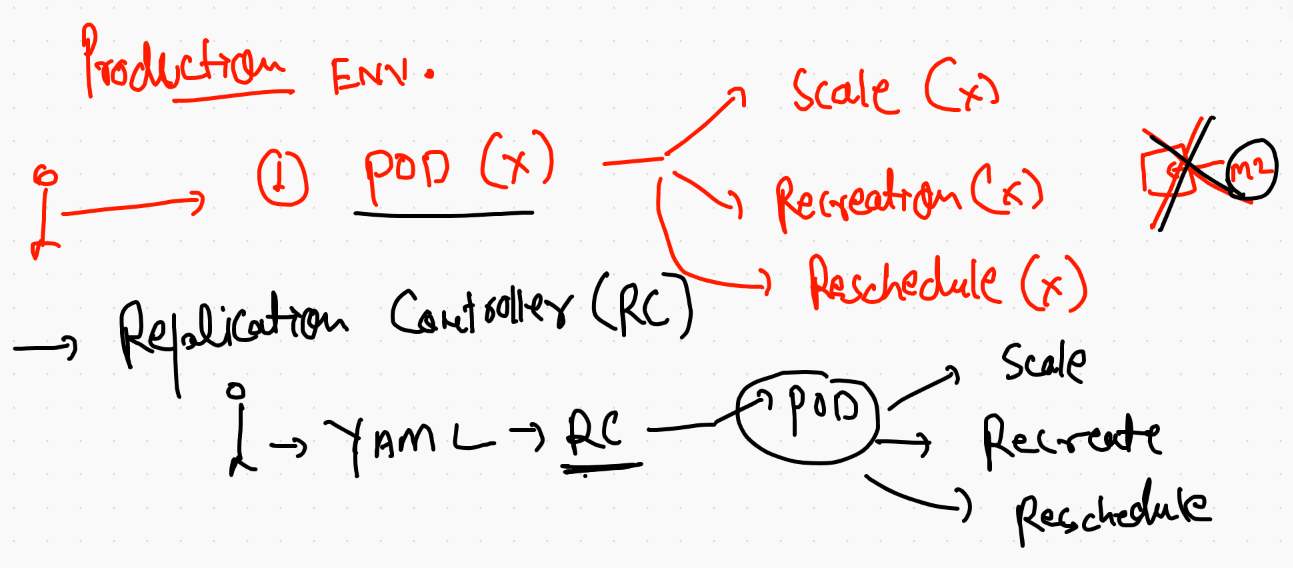 Production ENV.
① POD (x)
Scale (x)
Recreation (x)
Reschedule (x)
M2
Replication Controller (RC)
YAML → RC → POD
Scale
Recreate
Reschedule